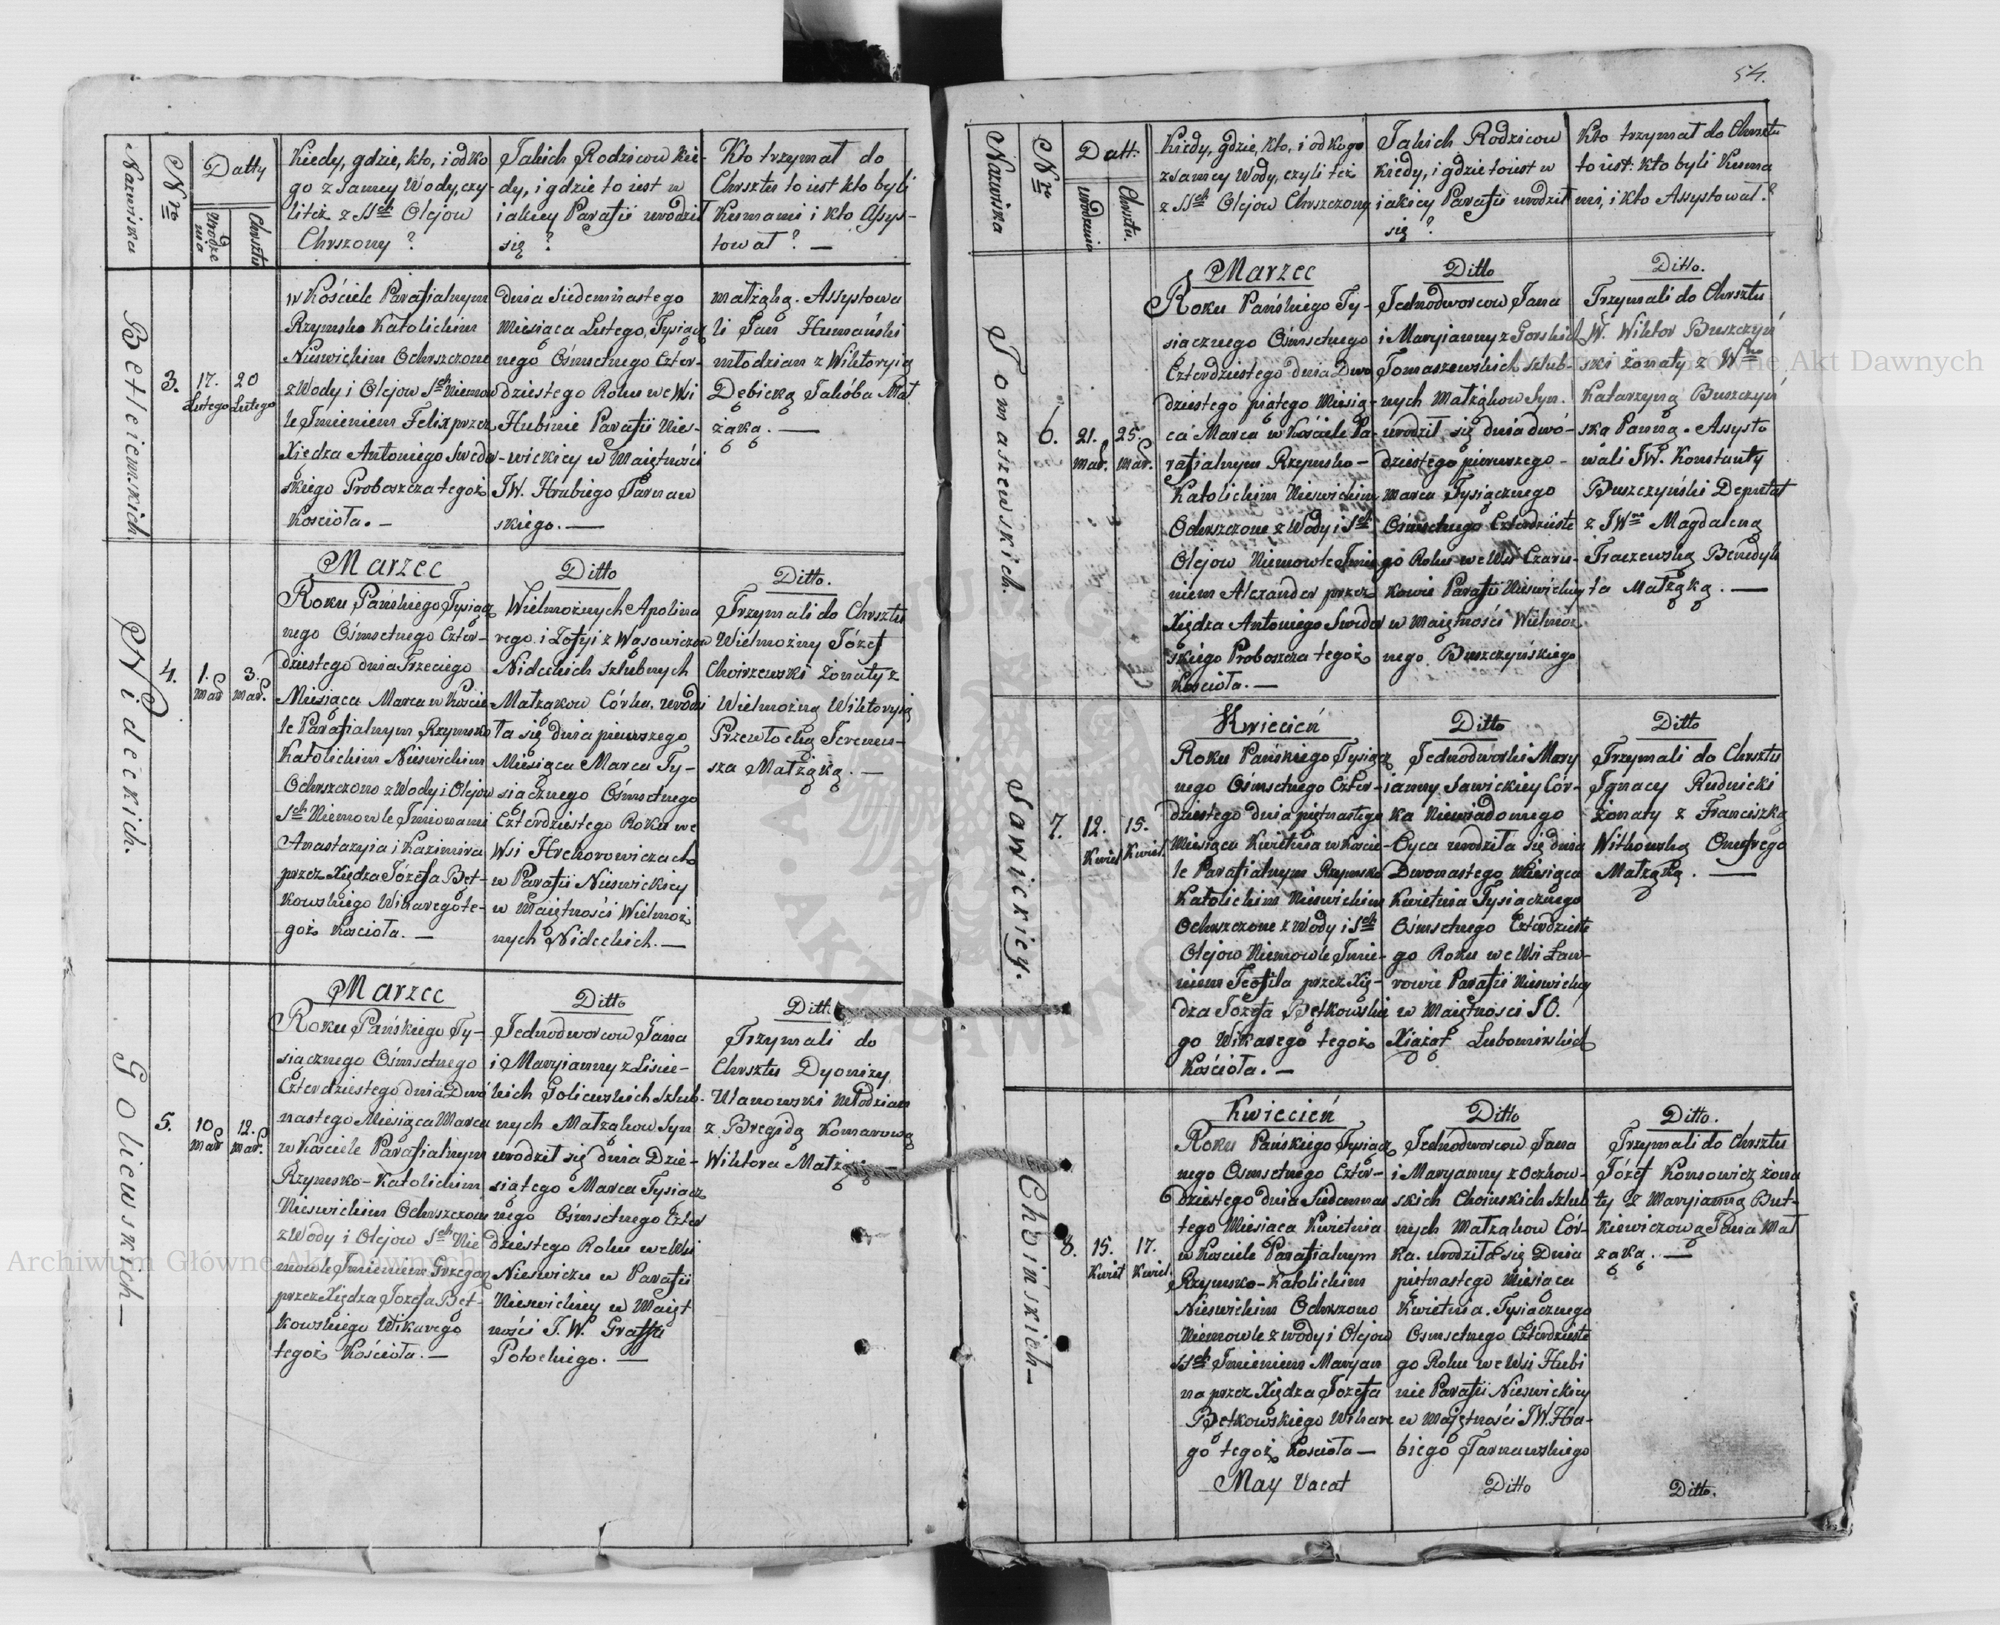 54.
Nazwiska
Nro
Datty
Urodze
nia
Chrsztu
Kiedy, gdzie, kto, i odko
go z Samey Wody, czy
liteż z SSch Olejow
Chrszony?
Jakich Rodzicow kie-
dy, i gdzie to iest w
iakiey Parafii urodził
się?
Kto trzymał do
Chrsztu to iest kto byli
Kumami i kto Assys-
tował? —
Betleiewskich
3.
17.
Lutego
20
Lutego
w Kościele Parafialnym
Rzymsko Katolickim
Nieswickim Ochrszczone
z Wody i Olejow Sch Niemow
le Imieniem Felix przez
Xiedza Antoniego Swider
skiego Proboszcza tegoż
Kościoła. —
dnia Siedemnastego
Miesiąca Lutego, Tysiącz
nego Ośmsetnego Czter-
dziestego Roku we Wsi
Hubinie Parafii Nies-
wickiey w Maiętności
JW. Hrabiego Tarnaw
skiego. —
małżąką. Assystowa
li Jan Humański
młodzian z Wiktoryią
Dębicką Jakóba Mał
żąką. —
Nideckich.
4.
1.
Mar
3.
Mar.
Marzec
Roku Pańskiego Tysiącz
nego Ośmsetnego Czter-
dziestego dnia Trzeciego
Miesiąca Marca w Koście
le Parafialnym Rzymsko
Katolickim Nieswickim
Ochrszczono z Wody i Olejow
Sch Niemowle Imionami
Anastazyia i Kazimira
przez Xiędza Józefa Bęt-
kowskiego Wikarego te-
goż Kościoła. —
Ditto
Wielmożnych Apolina
rego i Zofyi z Wąsowiczow
Nideckich szlubnych
Małżakow Córka. urodzi
ła się dnia pierwszego
Miesiąca Marca Ty-
siącznego Ośmsetnego
Czterdziestego Roku we
Wsi Hrehorowiczach
w Parafii Nieswickiey
w Maiętności Wielmoż
nych Nideckich. —
Ditto.
Trzymali do Chrsztu
Wielmożny Józef
Choirzewski żonaty z
Wielmożną Wiktoryią
Przewłocką Jeremia-
sza Małżąką. —
Goliewskich —
5.
10
Mar
12.
Mar.
Marzec
Roku Pańskiego Ty-
siącznego Ośmsetnego
Czterdziestego dnia Dwó
nastego Miesiąca Marca
w Kościele Parafialnym
Rzymsko-Katolickim
Nieswickim Ochrszczone
z Wody i Olejow Sch Nie
mowle Imieniem Grzegorz
przez Xiędza Józefa Bęt-
kowskiego Wikarego
tegoż Kościoła. —
Ditto
Jednodworcow Jana
i Maryianny z Lisiec-
kich Goliewskich Szlub-
nych Małżąkow Syn
urodził się dnia Dzie-
siątego Marca Tysiącz
nego Ośmsetnego Czter
dziestego Roku we Wsi
Nieswiczu w Parafii
Nieswickiey w Maięt
ności J.W. Graffa
Potockiego. —
Ditt.
Trzymali do
Chrsztu Dyonizy
Ulanowski Młodzian
z Brygidą Komarową
Wiktora Małżąką —
Nazwiska
Nro
Datt.
urodzenia
Chrsztu.
Kiedy, gdzie, kto, i od kogo
z Samey Wody, czyli też
z SSch Olejow Chrszczony
Jakich Rodzicow
kiedy, i gdzie to iest w
iakiey Parafii urodził
się?
Kto trzymał do Chrsztu
to iest: kto byli Kuma
mi, i kto Assystował?
Tomaszewskich.
6.
21.
Mar.
25.
Mar.
Marzec
Roku Pańskiego Ty-
siącznego Ośmsetnego
Czterdziestego dnia Dwu
dziestego piątego Miesią-
ca Marca w Kościele Pa-
rafialnym Rzymsko-
Katolickim Nieswickim
Ochrszczone z Wody i Sch
Olejow Niemowle Imie
niem Alexander przez
Xiędza Antoniego Swider
skiego Proboszcza tegoż
Kościoła. —
Ditto
Jednodworcow Jana
i Maryianny z Gorskich
Tomaszewskich szlub-
nych Małżąkow Syn.
urodził się dnia dwó-
dziestego pierwszego
Marca Tysiącznego
Ośmsetnego Czterdzieste
go Roku we Wsi Czaru-
kowie Parafii Nieswickiey
w Maiętności Wielmoż
nego Buszczyńskiego
Ditto.
Trzymali do Chrsztu
W. Wiktor Buszczyń
ski żonaty z Wną
Katarzyną Buszczyń
ską Panną. Assysto
wali JW. Konstanty
Buszczyński Deputat
z JWną Magdaleną
Traczewską Benedyk
ta Małżąką. —
Sawickiey.
7.
12.
Kwiet
15.
Kwiet.
Kwiecień
Roku Pańskiego Tysiącz
nego Ośmsetnego Czter-
dziestego dnia piętnastego
Miesiąca Kwietnia w Koście-
le Parafialnym Rzymsko
Katolickim Nieswickim
Ochrszczone z Wody i Sch
Olejow Niemowle Imie-
niem Teofila przez Xię-
dza Józefa Bętkowskie
go Wikarego tegoż
Kościoła. —
Ditto
Jednodworki Mary
ianny Sawickiey Cór-
ka Niewiadomego
Oyca urodziła się dnia
Dwonastego Miesiąca
Kwietnia Tysiącznego
Ośmsetnego Czterdzieste
go Roku we Wsi Ław-
rowie Parafii Nieswickiey
w Maiętności JO.
Xiążąt Lubomirskich
Ditto
Trzymali do Chrsztu
Ignacy Rudnicki
żonaty z Franciszką
Witkowską Onufrego
Małżąką. —
Choińskich —
8.
15.
Kwiet
17.
Kwiet.
Kwiecień
Roku Pańskiego Tysiącz
nego Ośmsetnego Czter-
dziestego dnia Siedemnas
tego Miesiąca Kwietnia
w Kościele Parafialnym
Rzymsko-Katolickim
Nieswickim Ochrszono
Niemowle z wody i Olejow
SSch Imieniem Maryan
na przez Xiędza Józefa
Bętkowskiego Wikare
go tegoż Kościoła —
May Vacat
Ditto
Jednodworcow Jana
i Maryanny z Oczkow-
skich Choińskich Szlub
nych Małżąkow Cór-
ka. urodziła się Dnia
piętnastego Miesiąca
Kwietnia. Tysiącznego
Osmsetnego Czterdzieste
go Roku we Wsi Hubi
nie Parafii Nieswickiey
w Maiętności JW. Hra-
biego Tarnawskiego
Ditto
Ditto.
Trzymali do Chrsztu
Józef Konsowicz żona
ty z Maryianną But-
kiewiczową Jana Mał
żąką. —
Ditto.
Archiwum Główne Akt Dawnych
Archiwum Główne Akt Dawnych